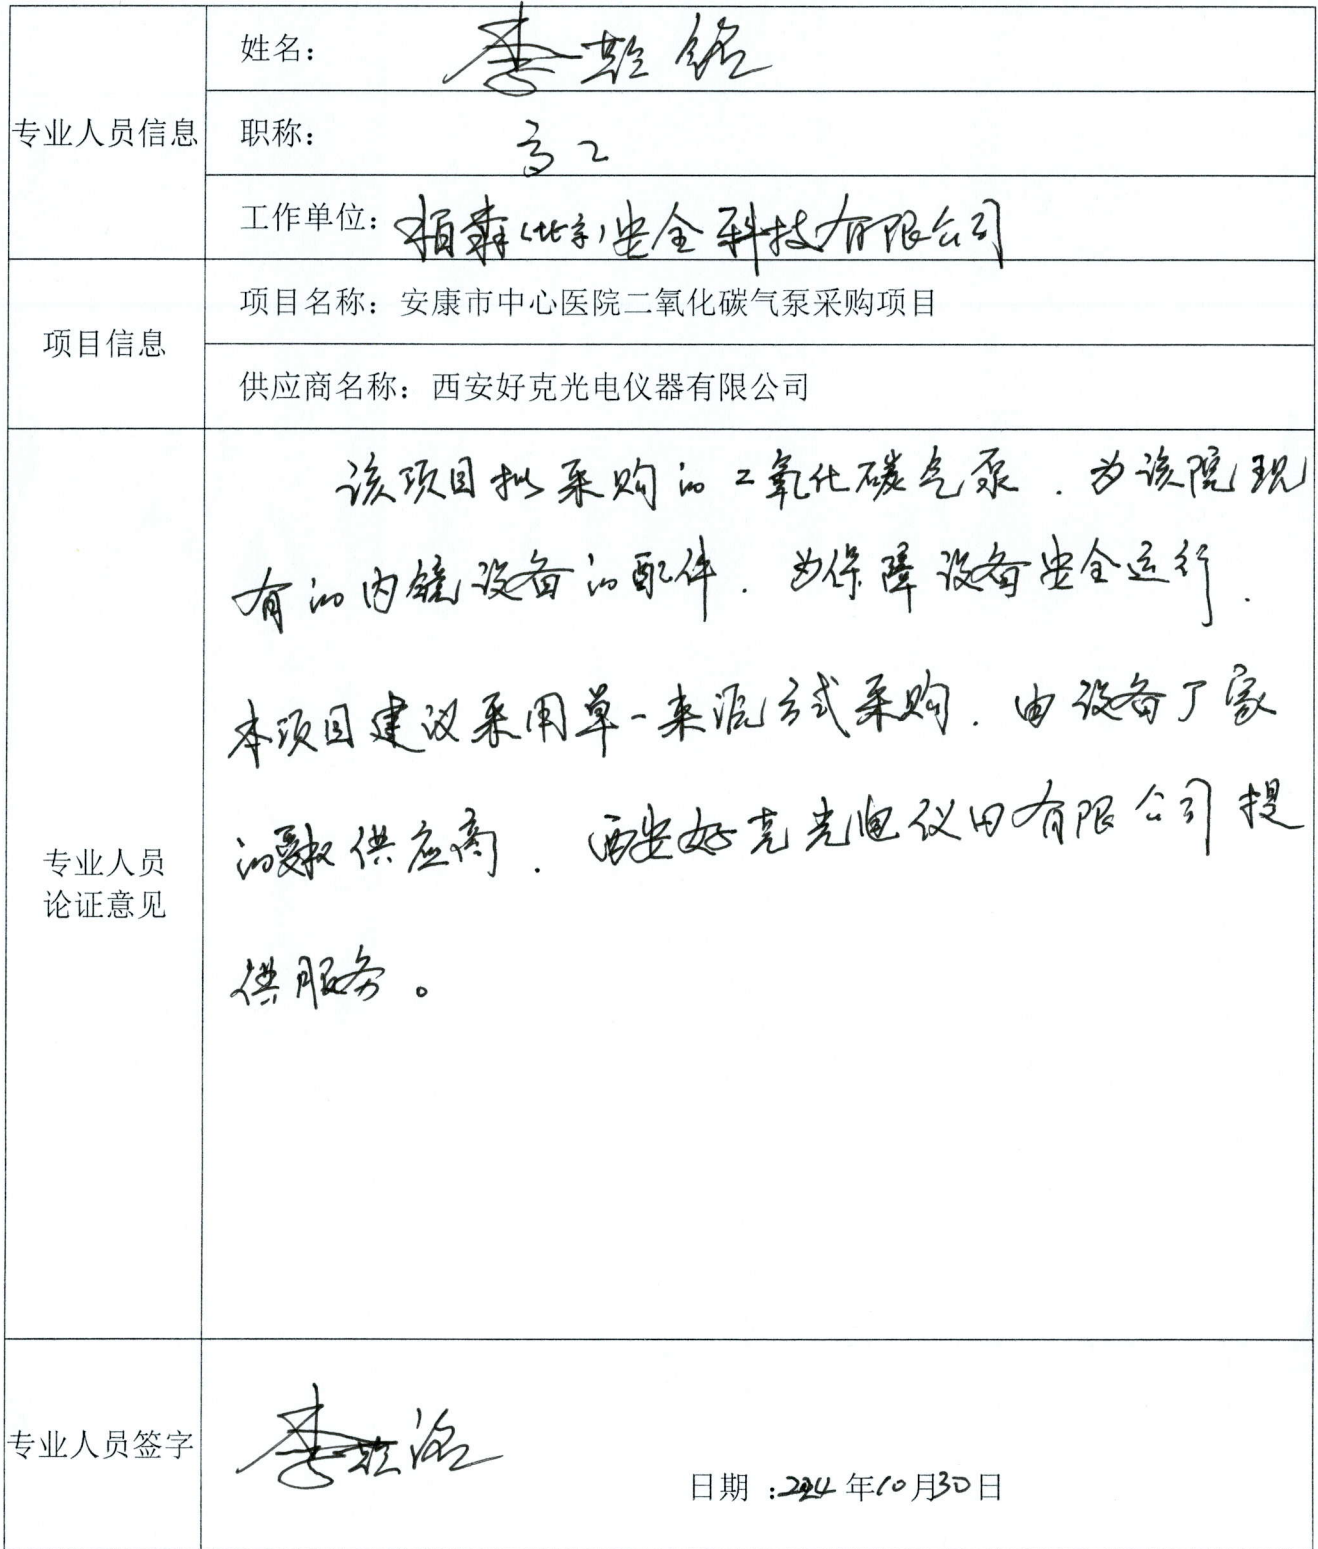 姓名：李
专业人员信息
职称：高工
工作单位：柏森（北京）安全科技有限公司
项目信息
项目名称：安康市中心医院二氧化碳气泵采购项目
供应商名称：西安好克光电仪器有限公司
专业人员
论证意见
该项目拟采购的二氧化碳气泵．为该院现
有的内镜设备的配件．为保障设备安全运行．
本项目建议采用单一来源方式采购．由设备厂家
的授权供应商．西安好克光电仪田有限公司提
供服务。
专业人员签字
李
日期：2024年10月30日